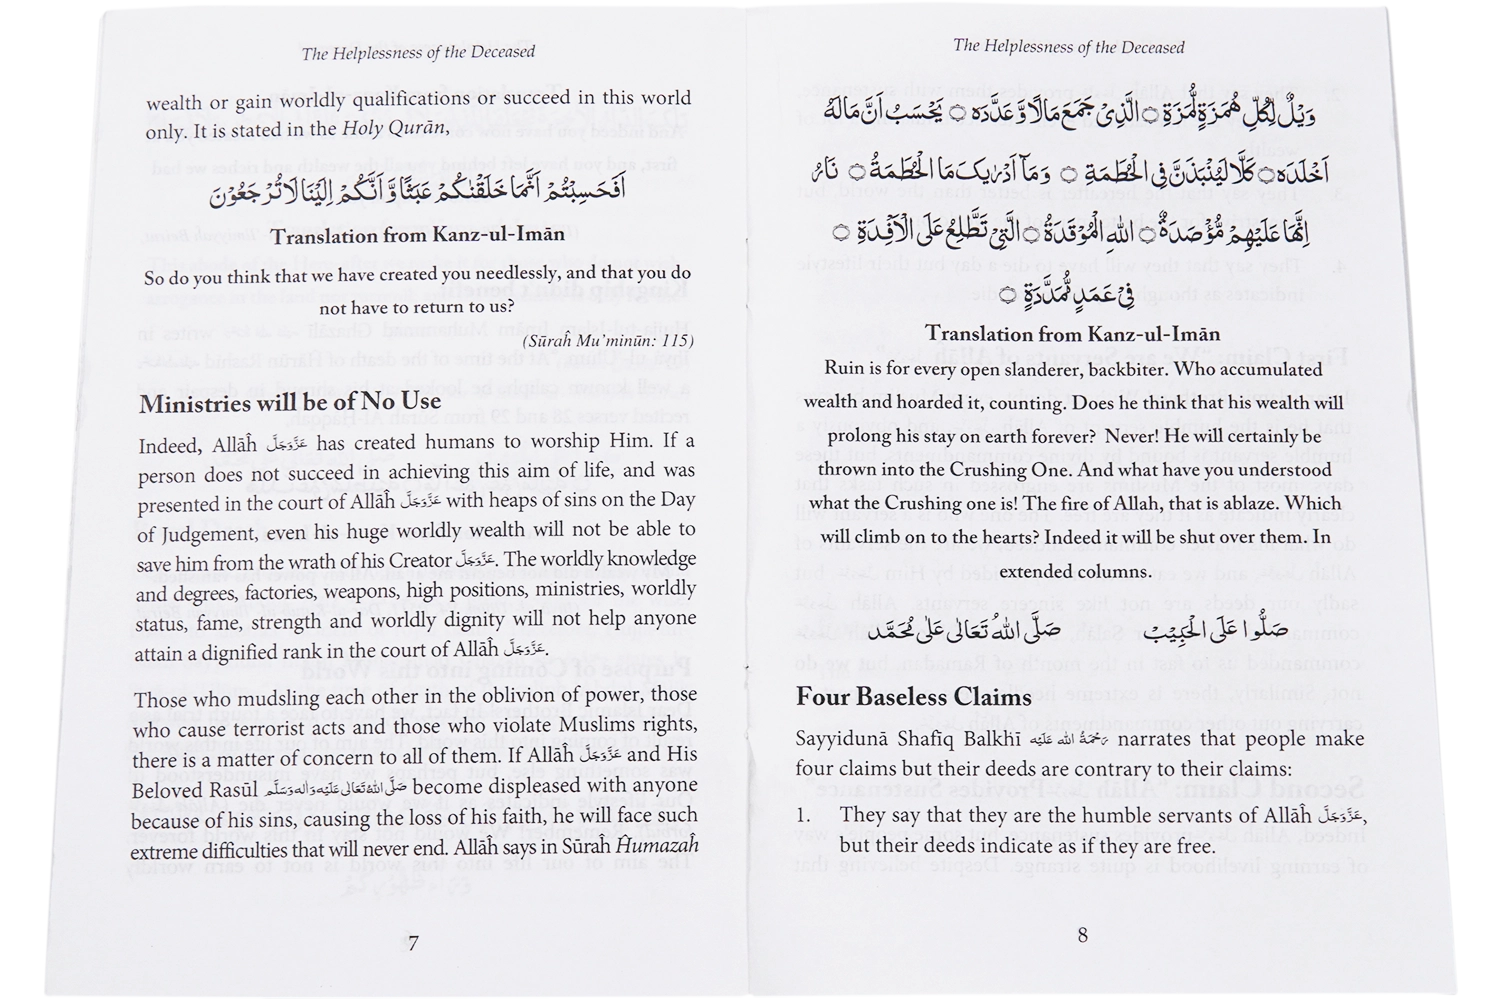 The Helplessness of the Deceased
wealth or gain worldly qualifications or succeed in this world
only. It is stated in the Holy Qurān,
اَفَحَسِبْتُمْ اَنَّمَا خَلَقْنٰكُمْ عَبَثًا وَّ اَنَّكُمْ اِلَيْنَا لَا تُرْجَعُوْنَ
Translation from Kanz-ul-Imān
So do you think that we have created you needlessly, and that you do
not have to return to us?
(Sūraĥ Mu’minūn: 115)
Ministries will be of No Use
Indeed, Allāĥ عَزَّوَجَلَّ has created humans to worship Him. If a
person does not succeed in achieving this aim of life, and was
presented in the court of Allāĥ عَزَّوَجَلَّ with heaps of sins on the Day
of Judgement, even his huge worldly wealth will not be able to
save him from the wrath of his Creator عَزَّوَجَلَّ. The worldly knowledge
and degrees, factories, weapons, high positions, ministries, worldly
status, fame, strength and worldly dignity will not help anyone
attain a dignified rank in the court of Allāĥ عَزَّوَجَلَّ.
Those who mudsling each other in the oblivion of power, those
who cause terrorist acts and those who violate Muslims rights,
there is a matter of concern to all of them. If Allāĥ عَزَّوَجَلَّ and His
Beloved Rasūl صَلَّى اللهُ تَعَالٰى عَلَيْهِ وَاٰلِهٖ وَسَلَّم become displeased with anyone
because of his sins, causing the loss of his faith, he will face such
extreme difficulties that will never end. Allāĥ says in Sūraĥ Ĥumazaĥ
7
The Helplessness of the Deceased
وَيْلٌ لِّكُلِّ هُمَزَةٍ لُّمَزَةِ ۝ الَّذِيْ جَمَعَ مَالًا وَّ عَدَّدَهٗ ۝ يَحْسَبُ اَنَّ مَالَهٗ
اَخْلَدَهٗ ۝ كَلَّا لَيُنْۢبَذَنَّ فِي الْحُطَمَةِ ۝ وَمَاۤ اَدْرٰىكَ مَا الْحُطَمَةُ ۝ نَارُ
اللهِ الْمُوْقَدَةُ ۝ الَّتِيْ تَطَّلِعُ عَلَى الْاَفْـِٕدَةِ ۝ اِنَّهَا عَلَيْهِمْ مُّؤْصَدَةٌ ۝
فِيْ عَمَدٍ مُّمَدَّدَةٍ ۝
Translation from Kanz-ul-Imān
Ruin is for every open slanderer, backbiter. Who accumulated
wealth and hoarded it, counting. Does he think that his wealth will
prolong his stay on earth forever? Never! He will certainly be
thrown into the Crushing One. And what have you understood
what the Crushing one is! The fire of Allah, that is ablaze. Which
will climb on to the hearts? Indeed it will be shut over them. In
extended columns.
صَلُّوْا عَلَى الْحَبِيْب صَلَّى اللهُ تَعَالٰى عَلٰى مُحَمَّد
Four Baseless Claims
Sayyidunā Shafīq Balkhī رَحْمَةُ اللهِ عَلَيْه narrates that people make
four claims but their deeds are contrary to their claims:
1. They say that they are the humble servants of Allāĥ عَزَّوَجَلَّ,
but their deeds indicate as if they are free.
8